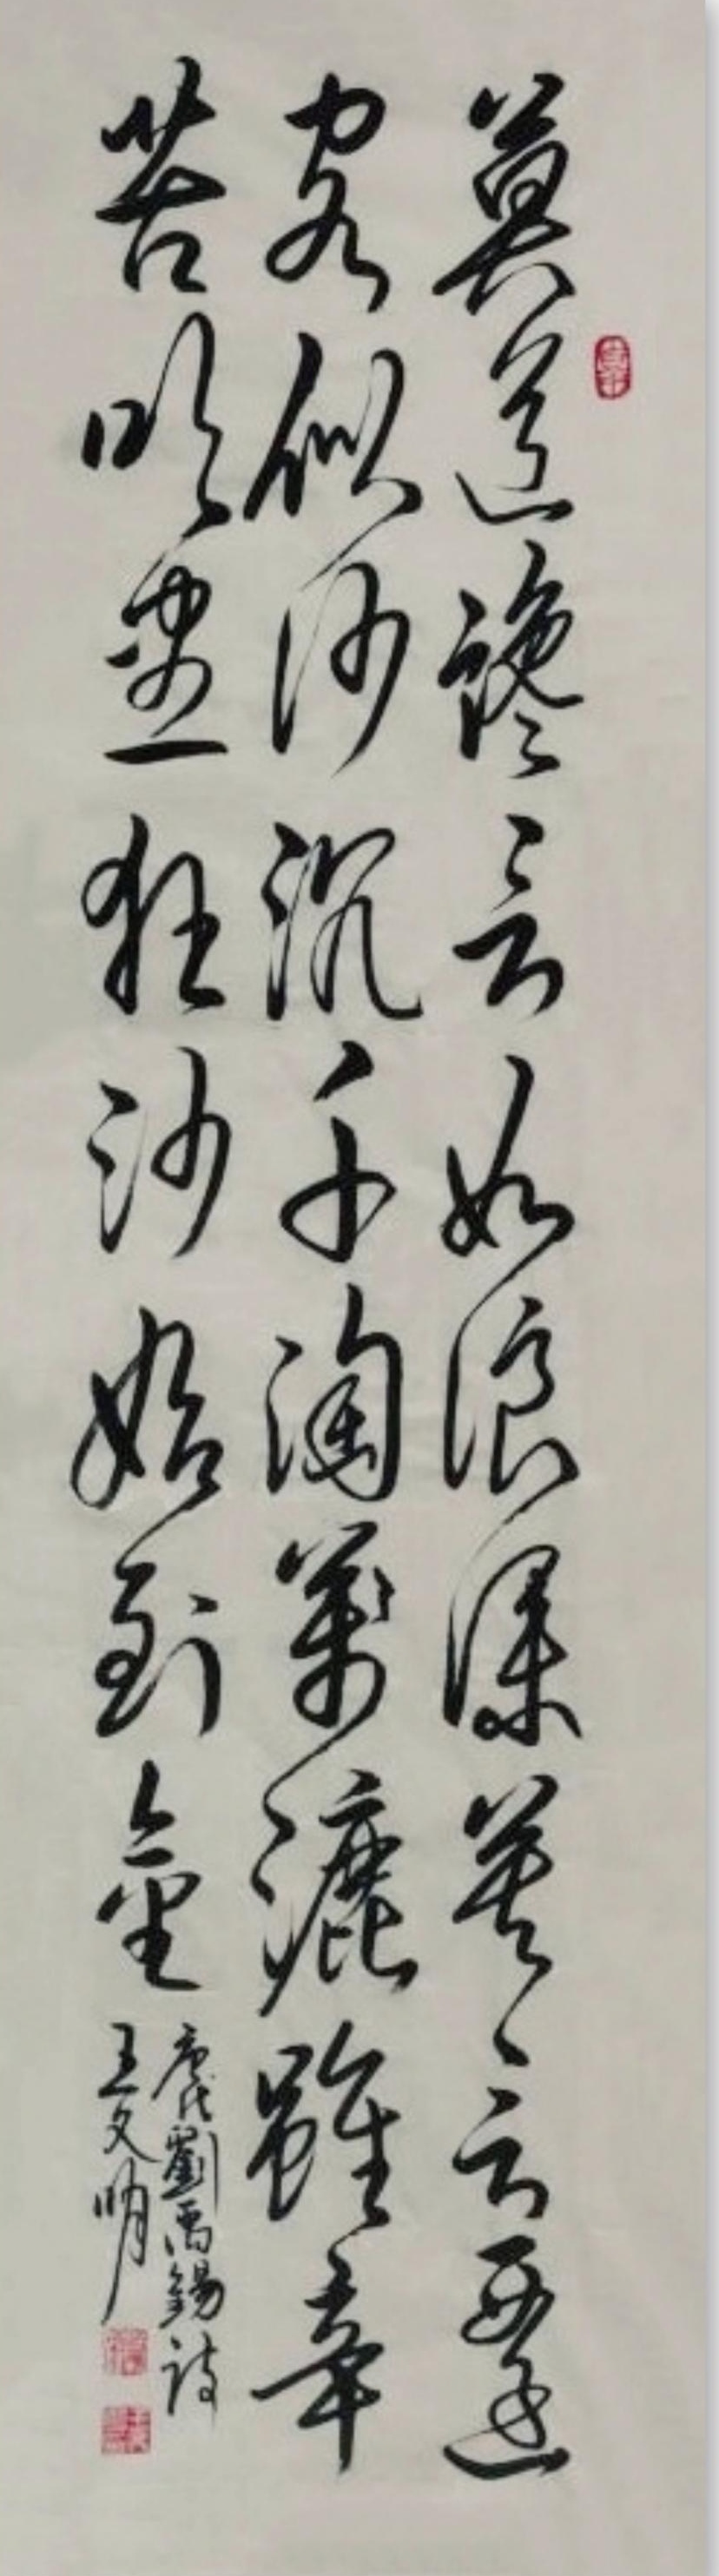 莫道讒言如浪深莫言遷
客似沙沉千淘萬漉雖辛
苦吹盡狂沙始到金
唐代劉禹錫詩
王文明